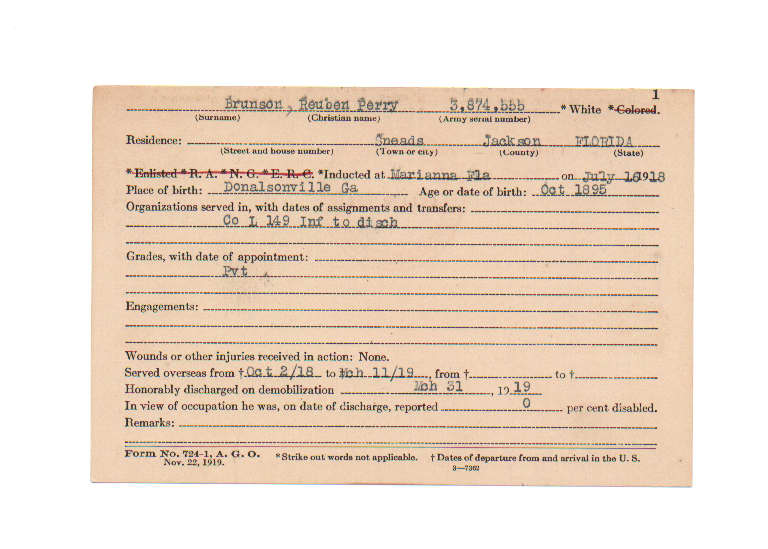 1
Brunson, Reuben Perry 3,874,555 * White * Colored.
(Surname) (Christian name) (Army serial number)
Residence: Sneads Jackson FLORIDA
(Street and house number) (Town or city) (County) (State)
* Enlisted * R. A. * N. G. * E. R. C. * Inducted at Marianna Fla on July 1918
Place of birth: Donalsonville Ga Age or date of birth: Oct 1895
Organizations served in, with dates of assignments and transfers:
Co L 149 Inf to disch
Grades, with date of appointment:
Pvt
Engagements:
Wounds or other injuries received in action: None.
Served overseas from † Oct 2/18 to Mch 11/19, from † to †
Honorably discharged on demobilization Mch 31, 1919
In view of occupation he was, on date of discharge, reported 0 per cent disabled.
Remarks:
Form No. 724-1, A. G. O. * Strike out words not applicable. † Dates of departure from and arrival in the U. S.
Nov. 22, 1919. 3—7362